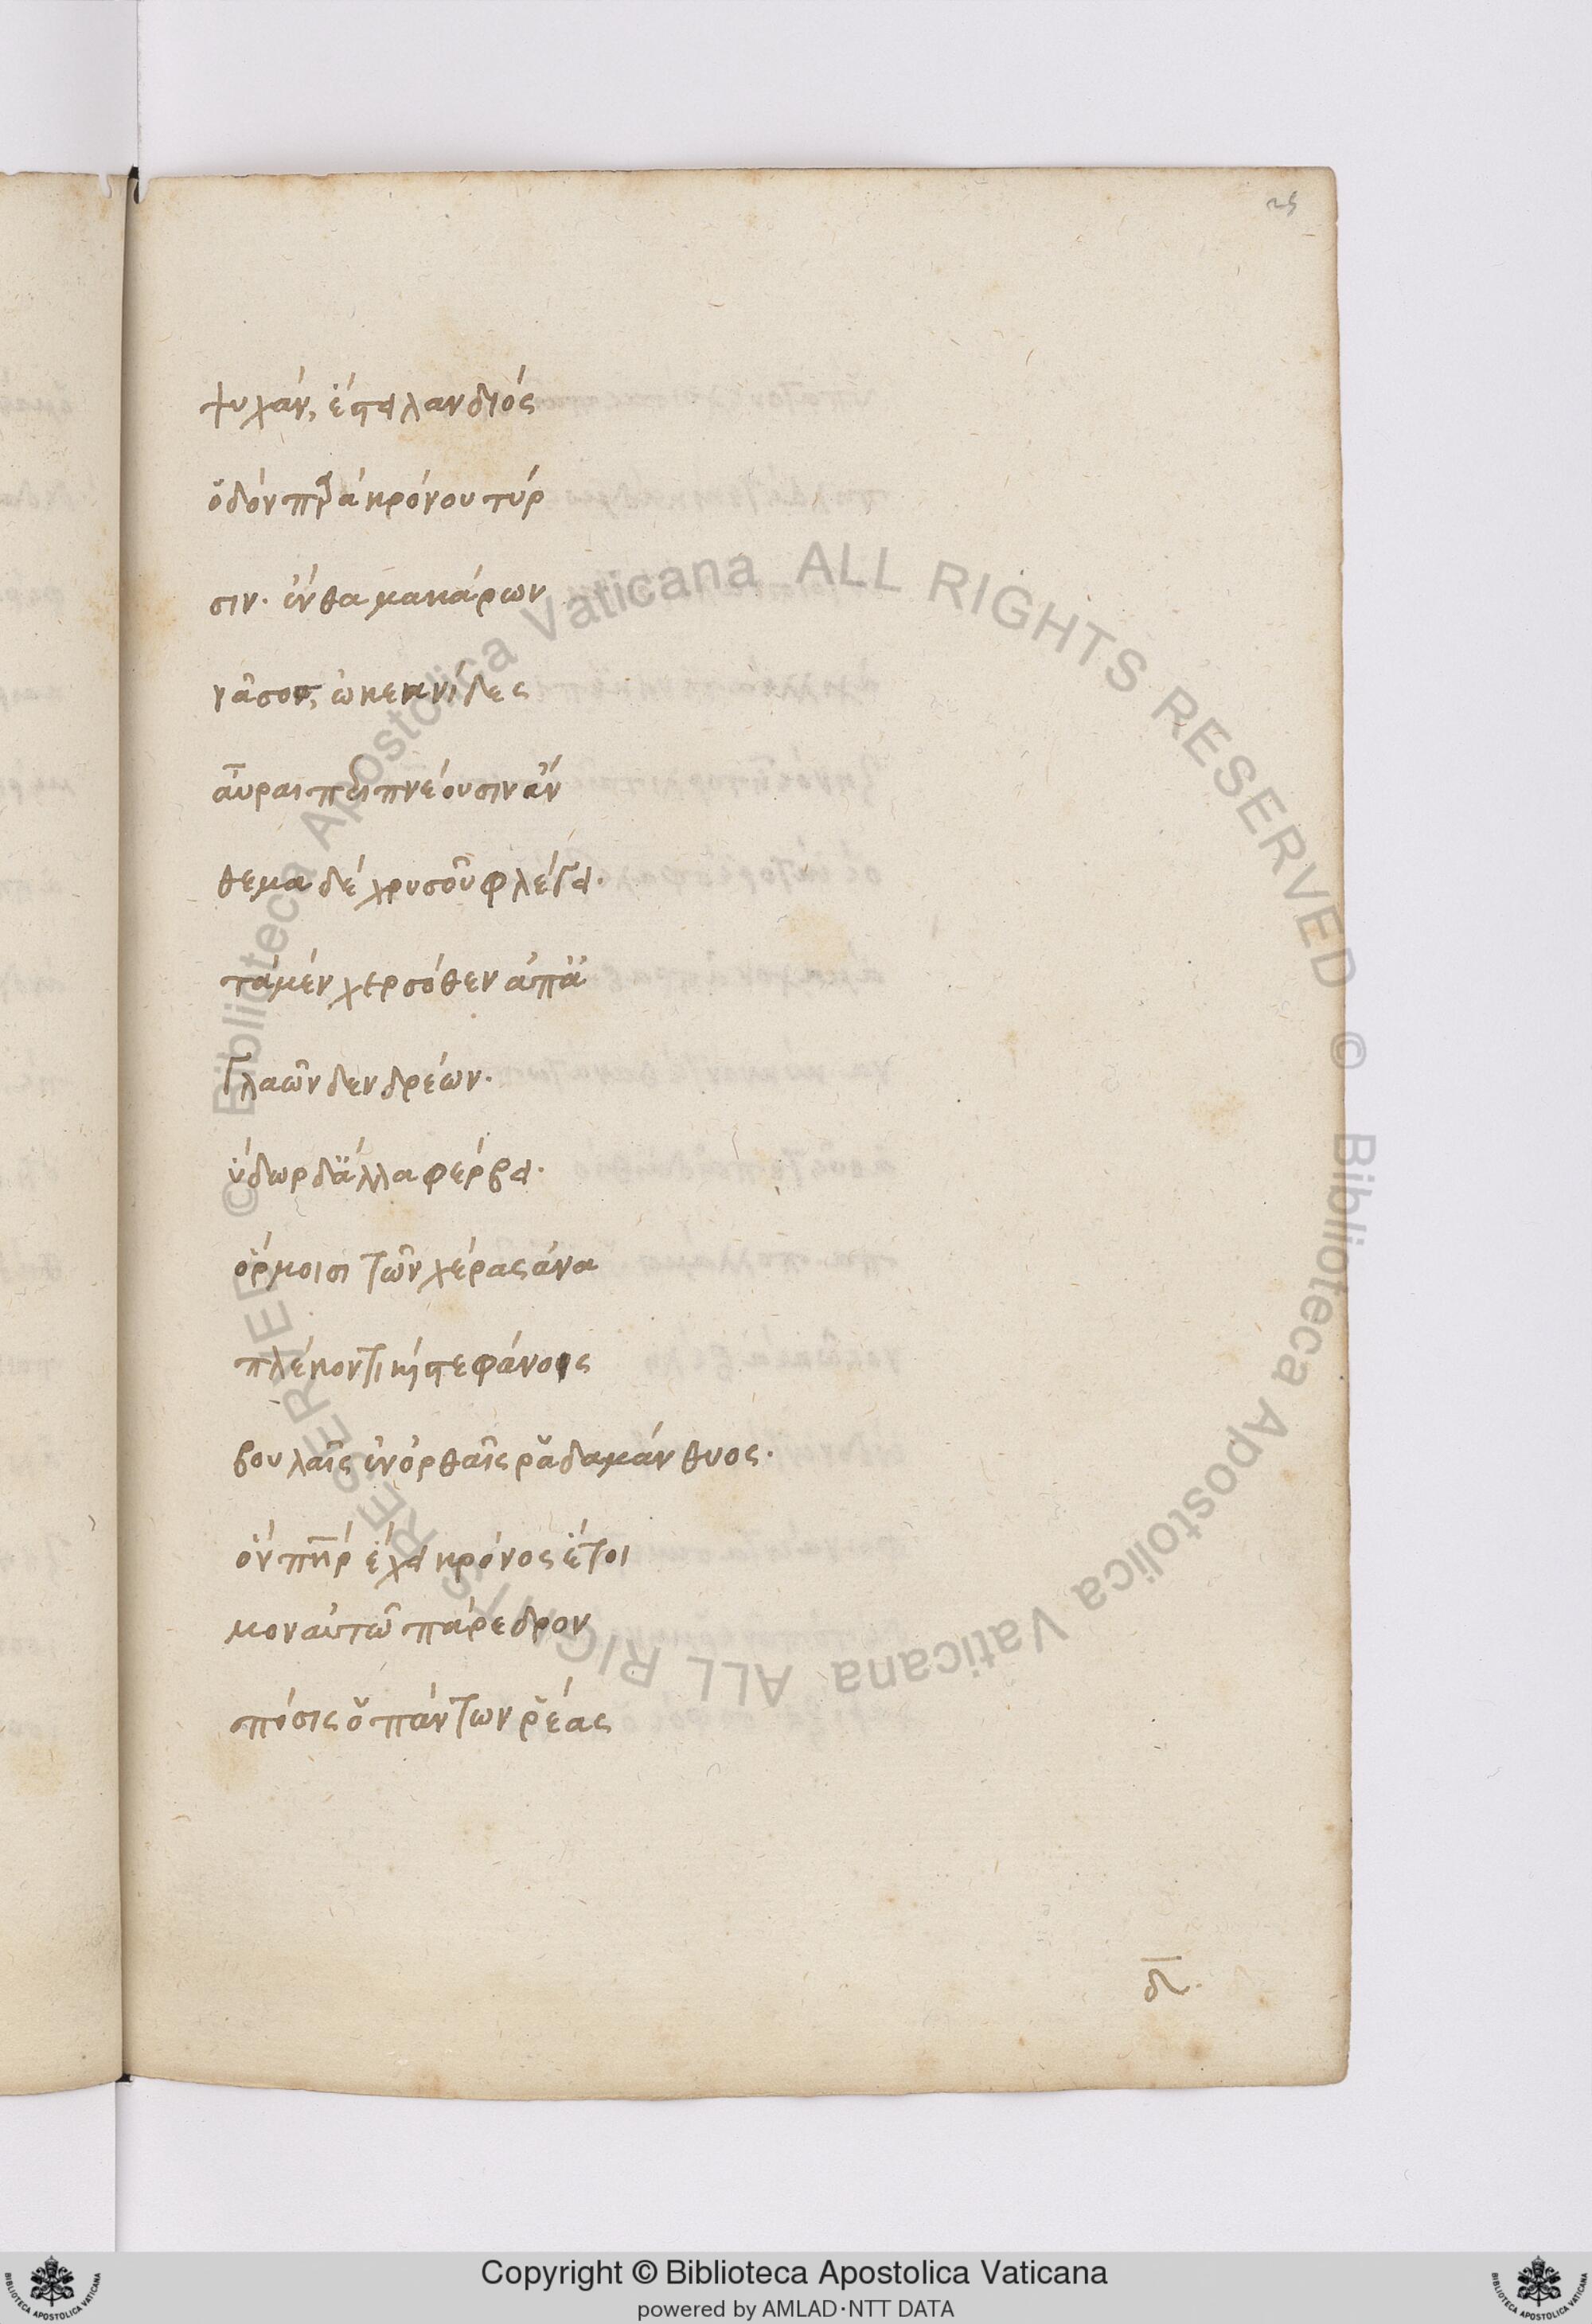 25
ψυχάν, ἔστειλαν διός
ὁδόν παρὰ κρόνου τύρ
σιν. ἔνθα μακάρων
νᾶσος, ὠκεανίδες
αὖραι περιπνέουσιν ἄν
θεμα δέ χρυσοῦ φλέγει.
τὰ μέν χερσόθεν ἀπ' ἀ
γλαῶν δενδρέων.
ὕδωρ δ' ἄλλα φέρβει.
ὅρμοισι τῶν χέρας ἀνα
πλέκοντι καὶ στεφάνοις
βουλαῖς ἐν ὀρθαῖς ῥαδαμάνθυος.
ὅν πατὴρ ἔχει κρόνος ἕτοι
μον αὐτῶ πάρεδρον
πόσις ὁ πάντων ῥέας
δ.
Copyright © Biblioteca Apostolica Vaticana
powered by AMLAD·NTT DATA
© Biblioteca Apostolica Vaticana ALL RIGHTS RESERVED
© Biblioteca Apostolica Vaticana ALL RIGHTS RESERVED